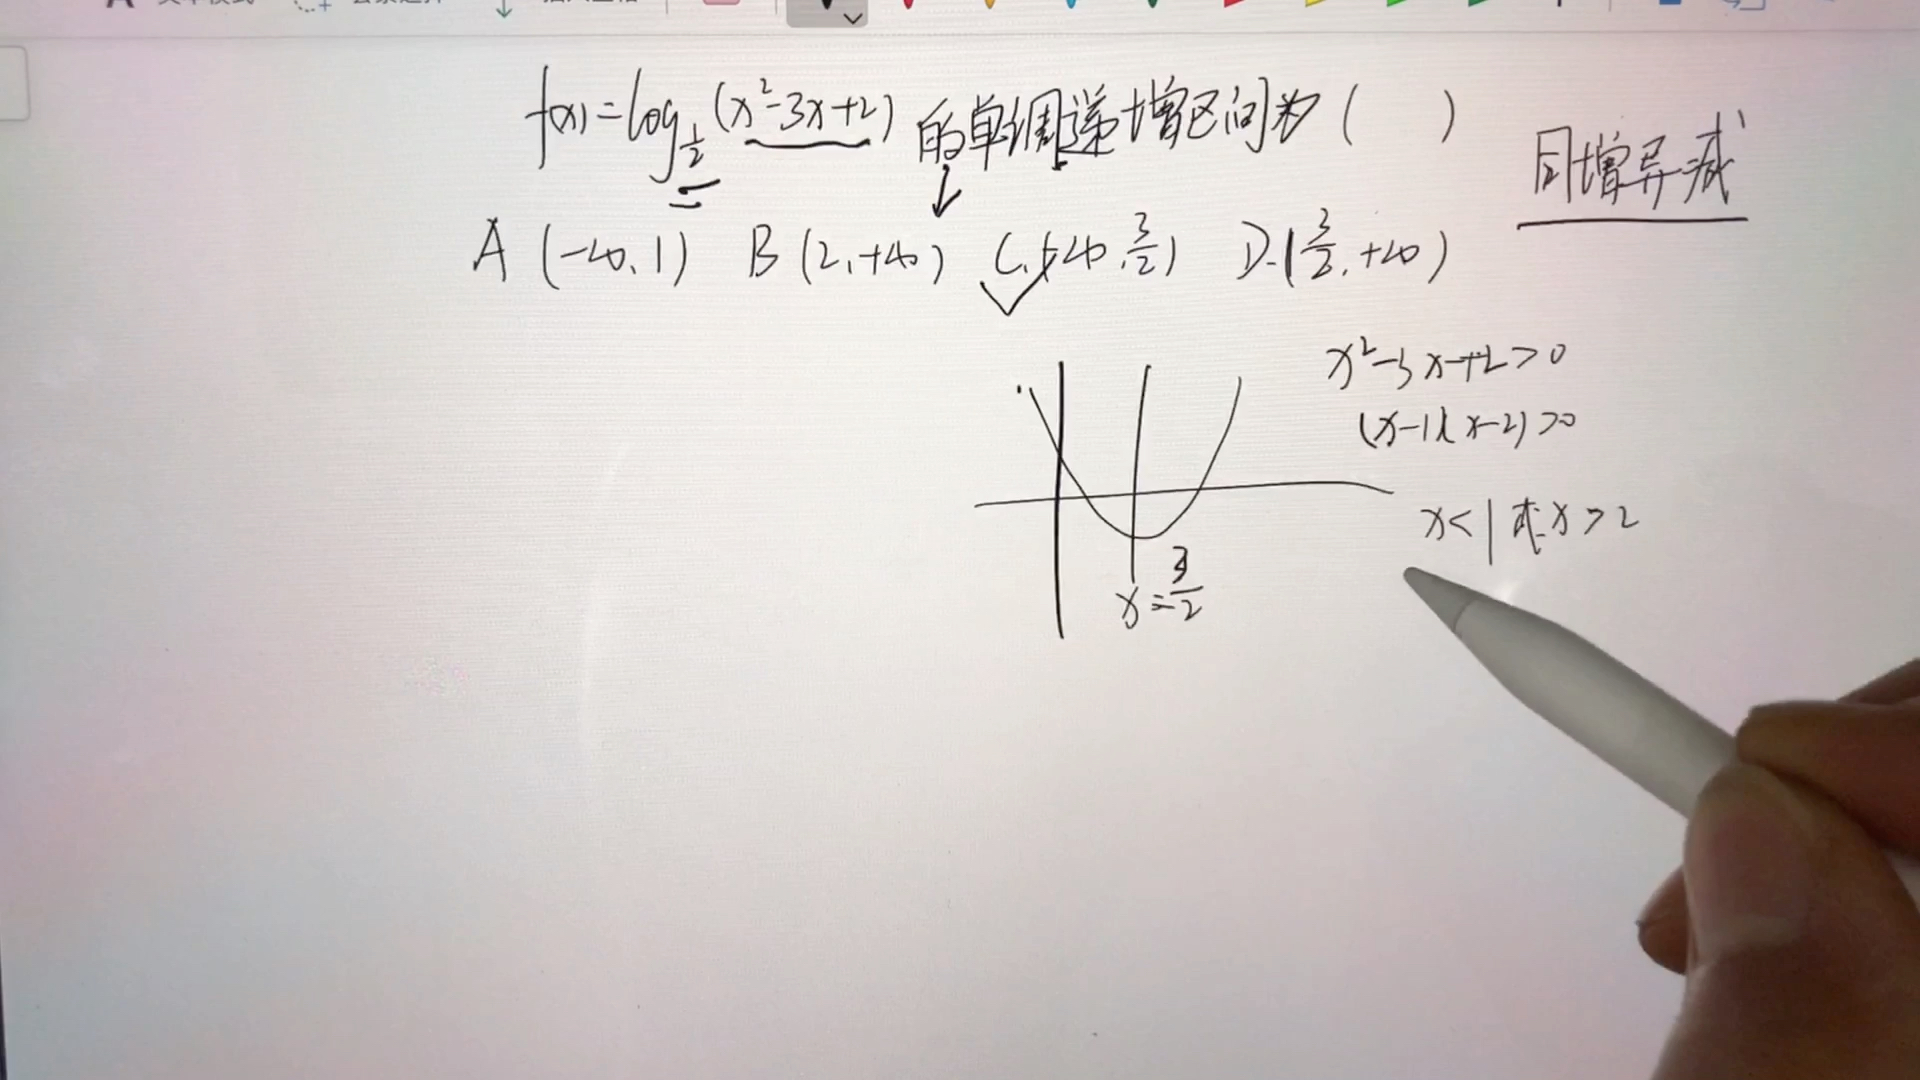 f(x)=log_{1/2}(x²-3x+2)的单调递增区间为(  )
同增异减
A (-∞,1) B (2,+∞) C.(-∞,3/2) D.(3/2,+∞)
x²-3x+2>0
(x-1)(x-2)>0
x<1或x>2
x=3/2